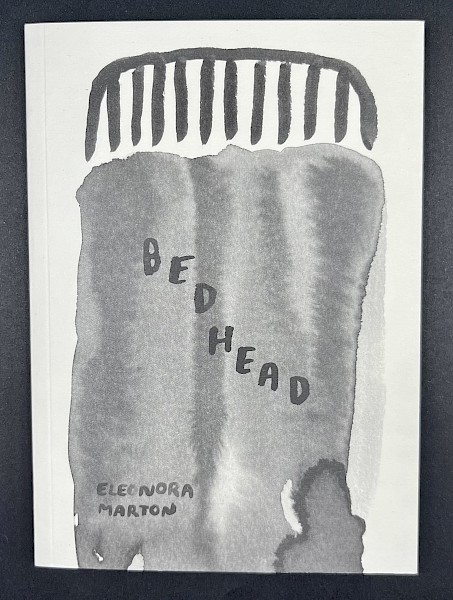 BED
HEAD
ELEONORA
MARTON